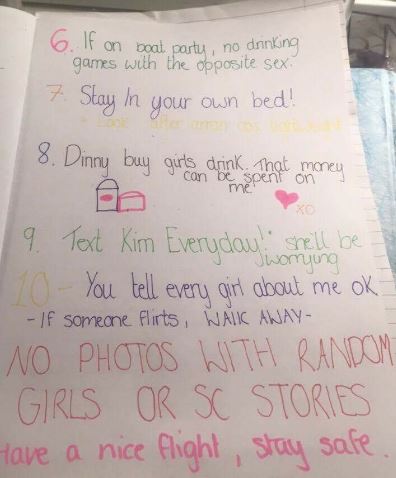 6. If on boat party, no drinking
games with the opposite sex.
7. Stay In your own bed!
* Look after arron cos lightweight
8. Dinny buy girls drink. That money
can be spent on
me!
XO
9. Text Kim Everyday! she'll be
worrying
10 - You tell every girl about me OK
- If someone flirts, WALK AWAY -
NO PHOTOS WITH RANDOM
GIRLS OR SC STORIES
Have a nice flight, stay safe.